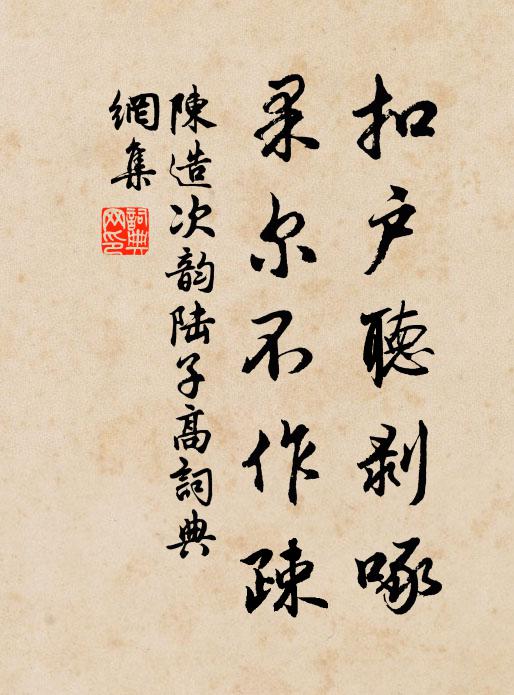 扣户聽剥啄
果尔不作疎
陳造次韵陆子高詞典
網集
詞典网印